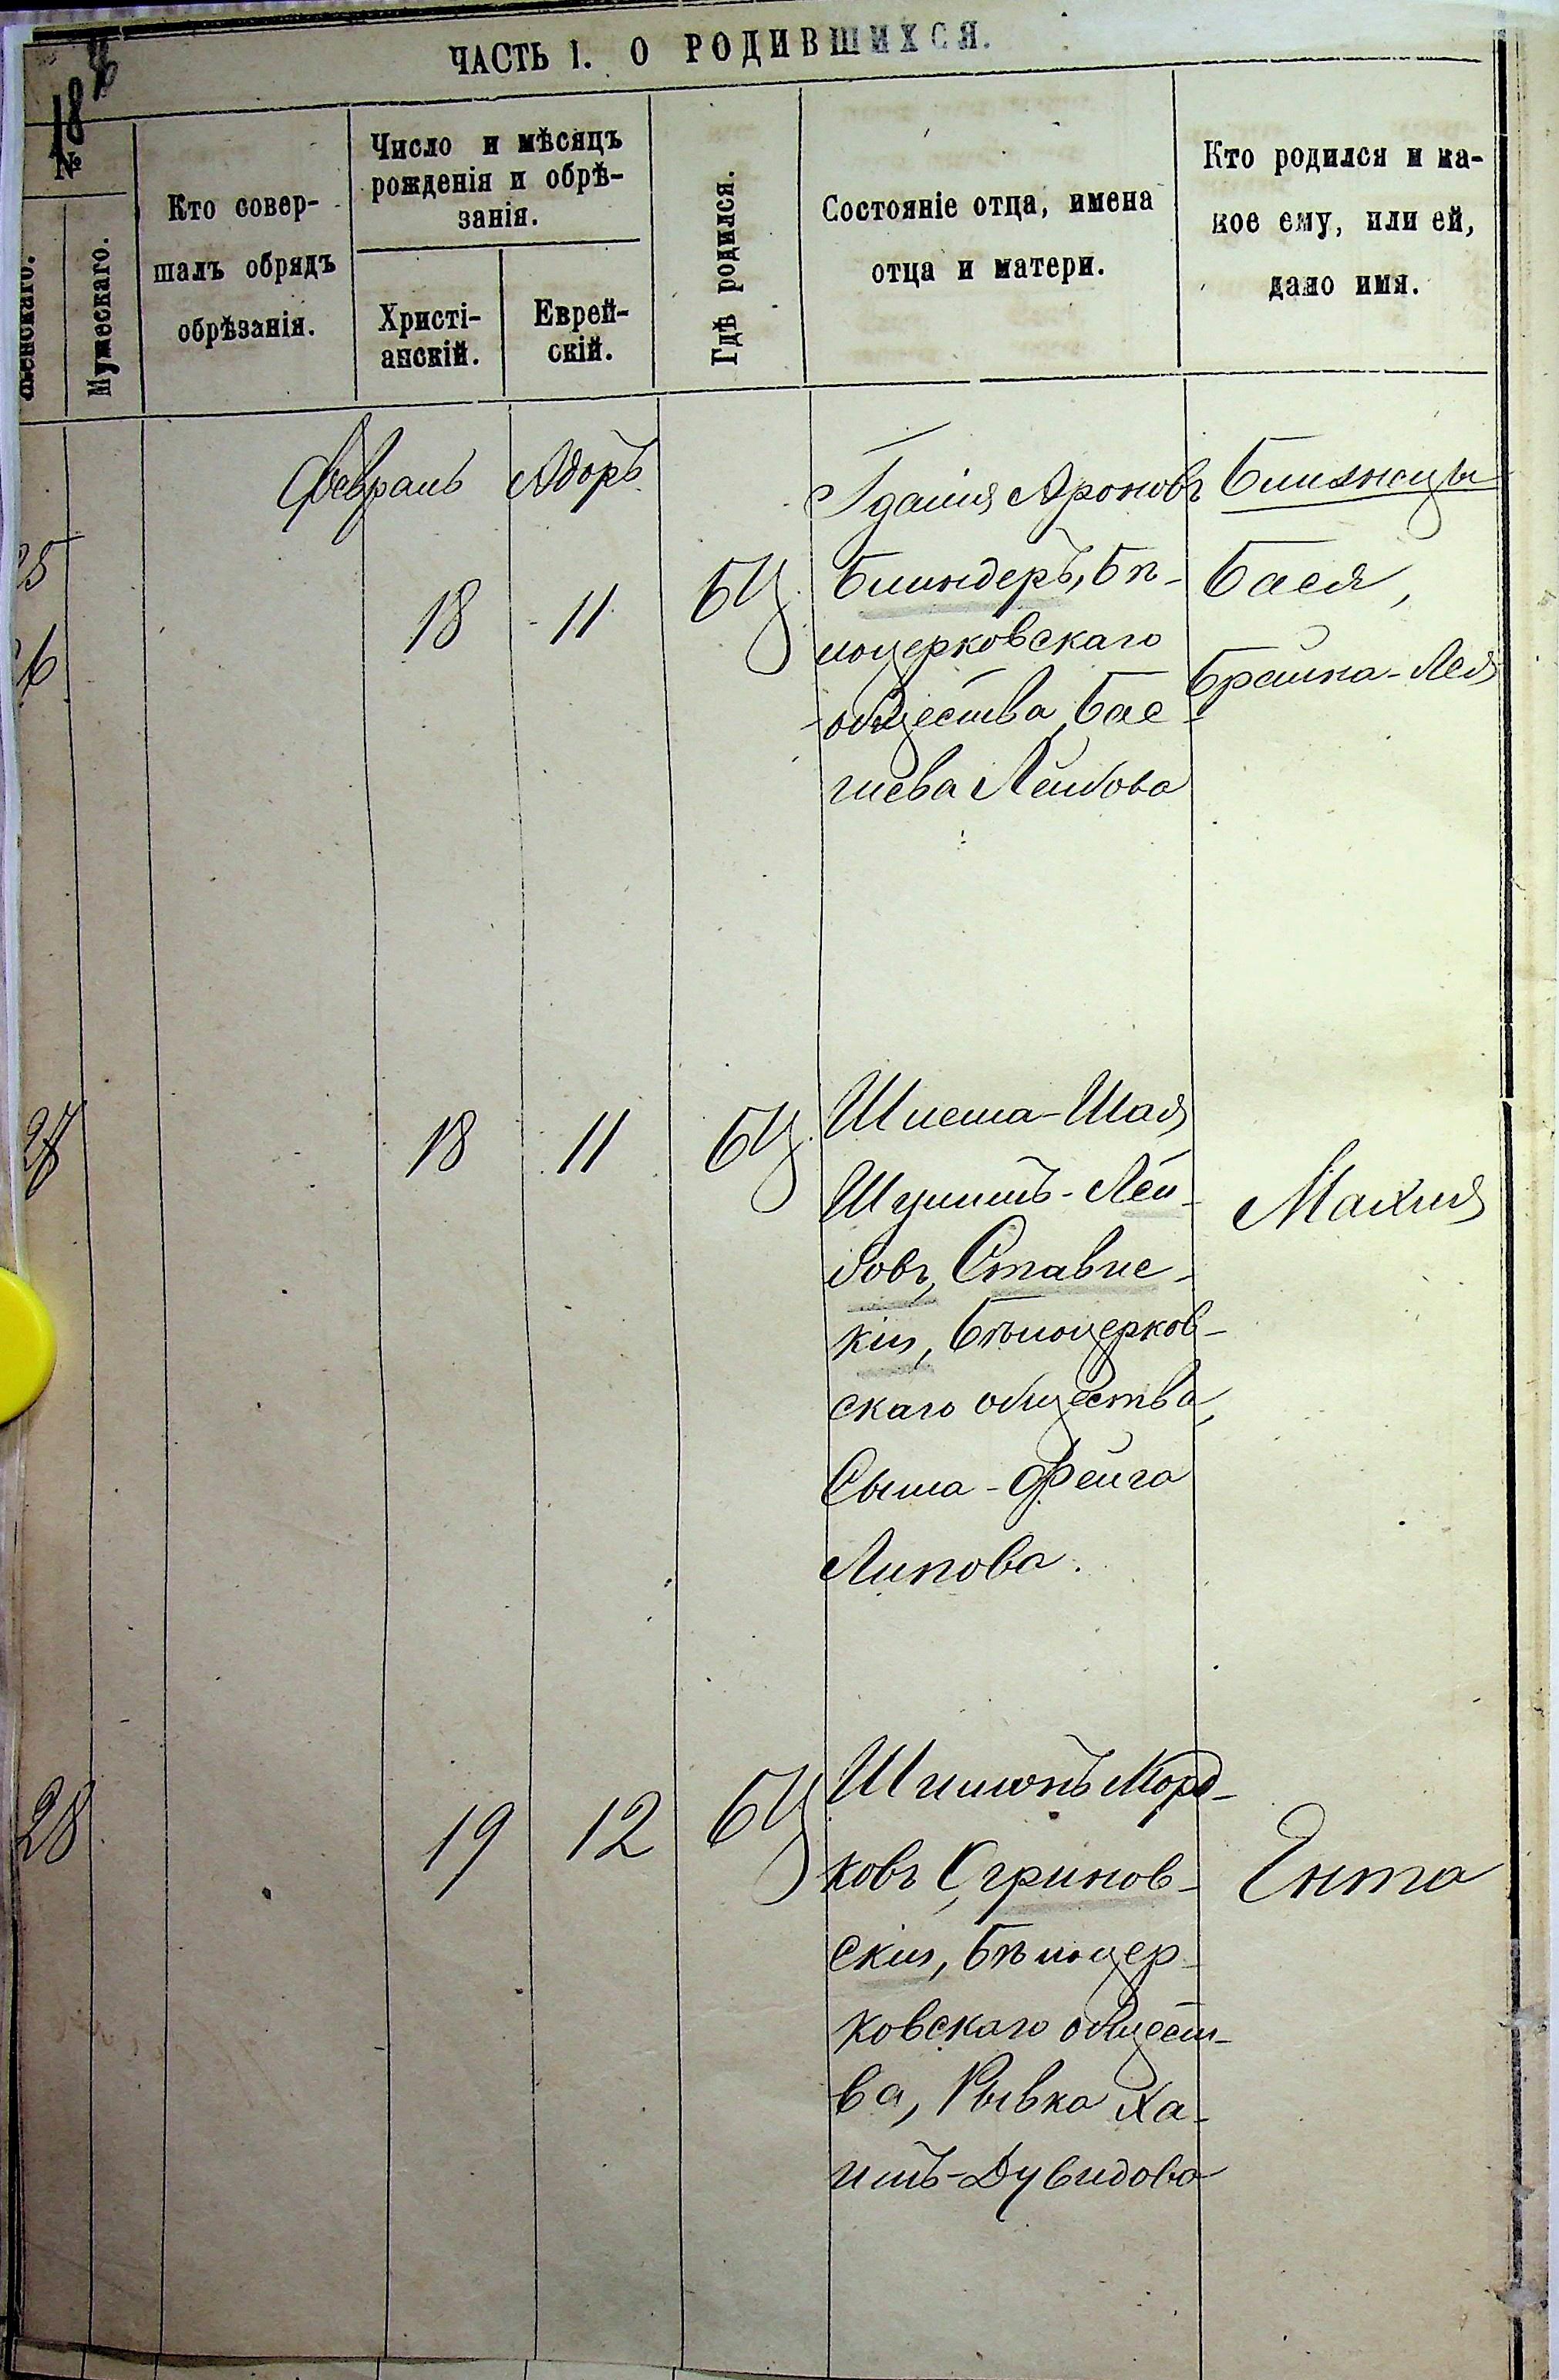 ЧАСТЬ I. О РОДИВШИХСЯ.
№
Женскаго.
Мужескаго.
Кто совер-
шалъ обрядъ
обрѣзанія.
Число и мѣсяцъ
рожденія и обрѣ-
занія.
Христі-
анскій.
Еврей-
скій.
Гдѣ родился.
Состояніе отца, имена
отца и матери.
Кто родился и ка-
кое ему, или ей,
дано имя.
Февраль Адоръ
25
26
18 11 БЦ
Гдалія Ароновъ
Блиндеръ, Бѣ-
лоцерковскаго
общества, Бас-
шева Лейбова
Близнецы
Бася,
Брайна-Лея
27
18 11 БЦ
Шлема-Шая
Шулимъ-Лей-
бовъ, Ставис-
кій, Бѣлоцерков-
скаго общества,
Сыма-Фейга
Липова.
Малия
28
19 12 БЦ
Шимонъ Морд-
ковъ Огринов-
скій, Бѣлоцер-
ковскаго общест-
ва, Рывка Ха-
имъ-Дувидова
Ента